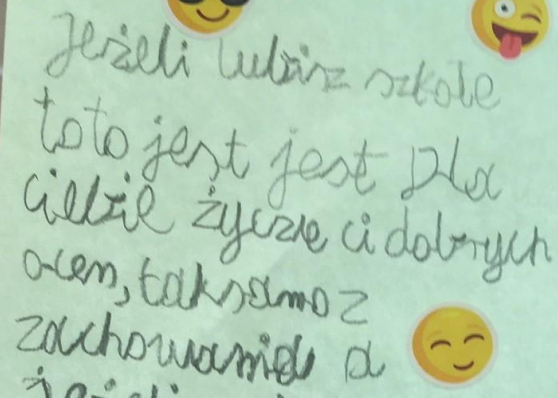 Jeżeli lubisz szkole
toto jest jest Dla
ciebie życzę ci dobrych
ocen, taksamo z
zachowania a